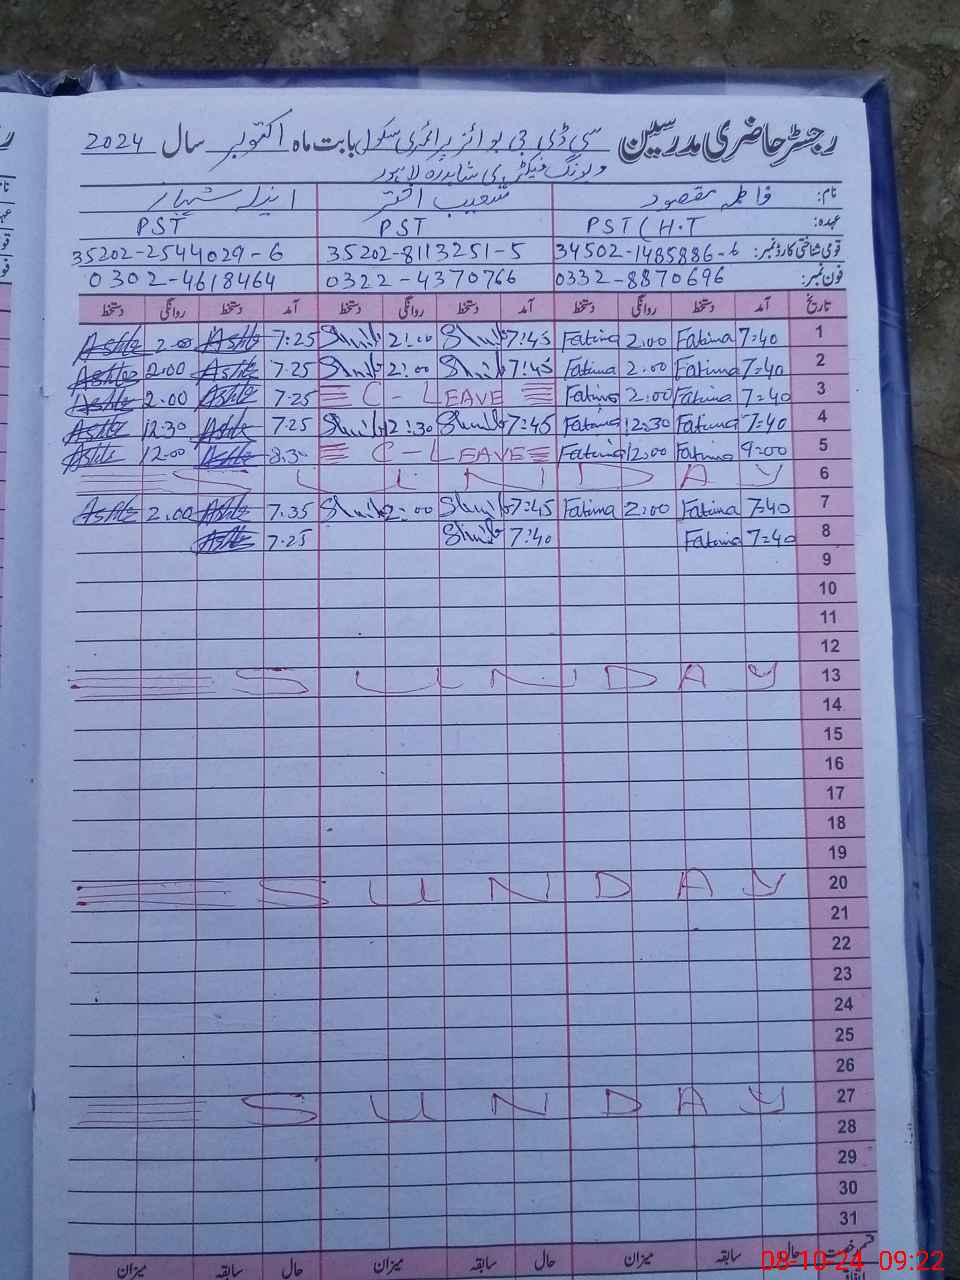 رجسٹر حاضری مدرسین سی ڈی جی بوائز پرائمری سکول بابت ماہ اکتوبر سال 2024
ویونگ فیکٹری شاہدرہ لاہور
نام: فاطمہ مقصود شعیب اختر
عہدہ: PST (H.T PST PST
قومی شناختی کارڈ نمبر: 34502-1485886-6 35202-8113251-5 35202-2544029-6
فون نمبر: 0332-8870696 0322-4370766 0302-4618464
تاریخ آمد دستخط روانگی دستخط آمد دستخط روانگی دستخط آمد دستخط روانگی دستخط
1 7:40 Fatima 2:00 Fatima 7:45 2:00 7:25 2:00
2 7:40 Fatima 2:00 Fatima 7:45 2:00 7:25 2:00
3 7:40 Fatima 2:00 Fatima C - LEAVE 7:25 2:00
4 7:40 Fatima 12:30 Fatima 7:45 12:30 7:25 12:30
5 9:00 Fatima 12:00 Fatima C - LEAVE 8:30 12:00
6 SUNDAY
7 7:40 Fatima 2:00 Fatima 7:45 2:00 7:35 2:00
8 7:40 Fatima 7:40 7:25
9
10
11
12
13 SUNDAY
14
15
16
17
18
19
20 SUNDAY
21
22
23
24
25
26
27 SUNDAY
28
29
30
31
قسم رخصت حال سابقہ میزان حال سابقہ میزان حال سابقہ میزان
08-10-24 09:22